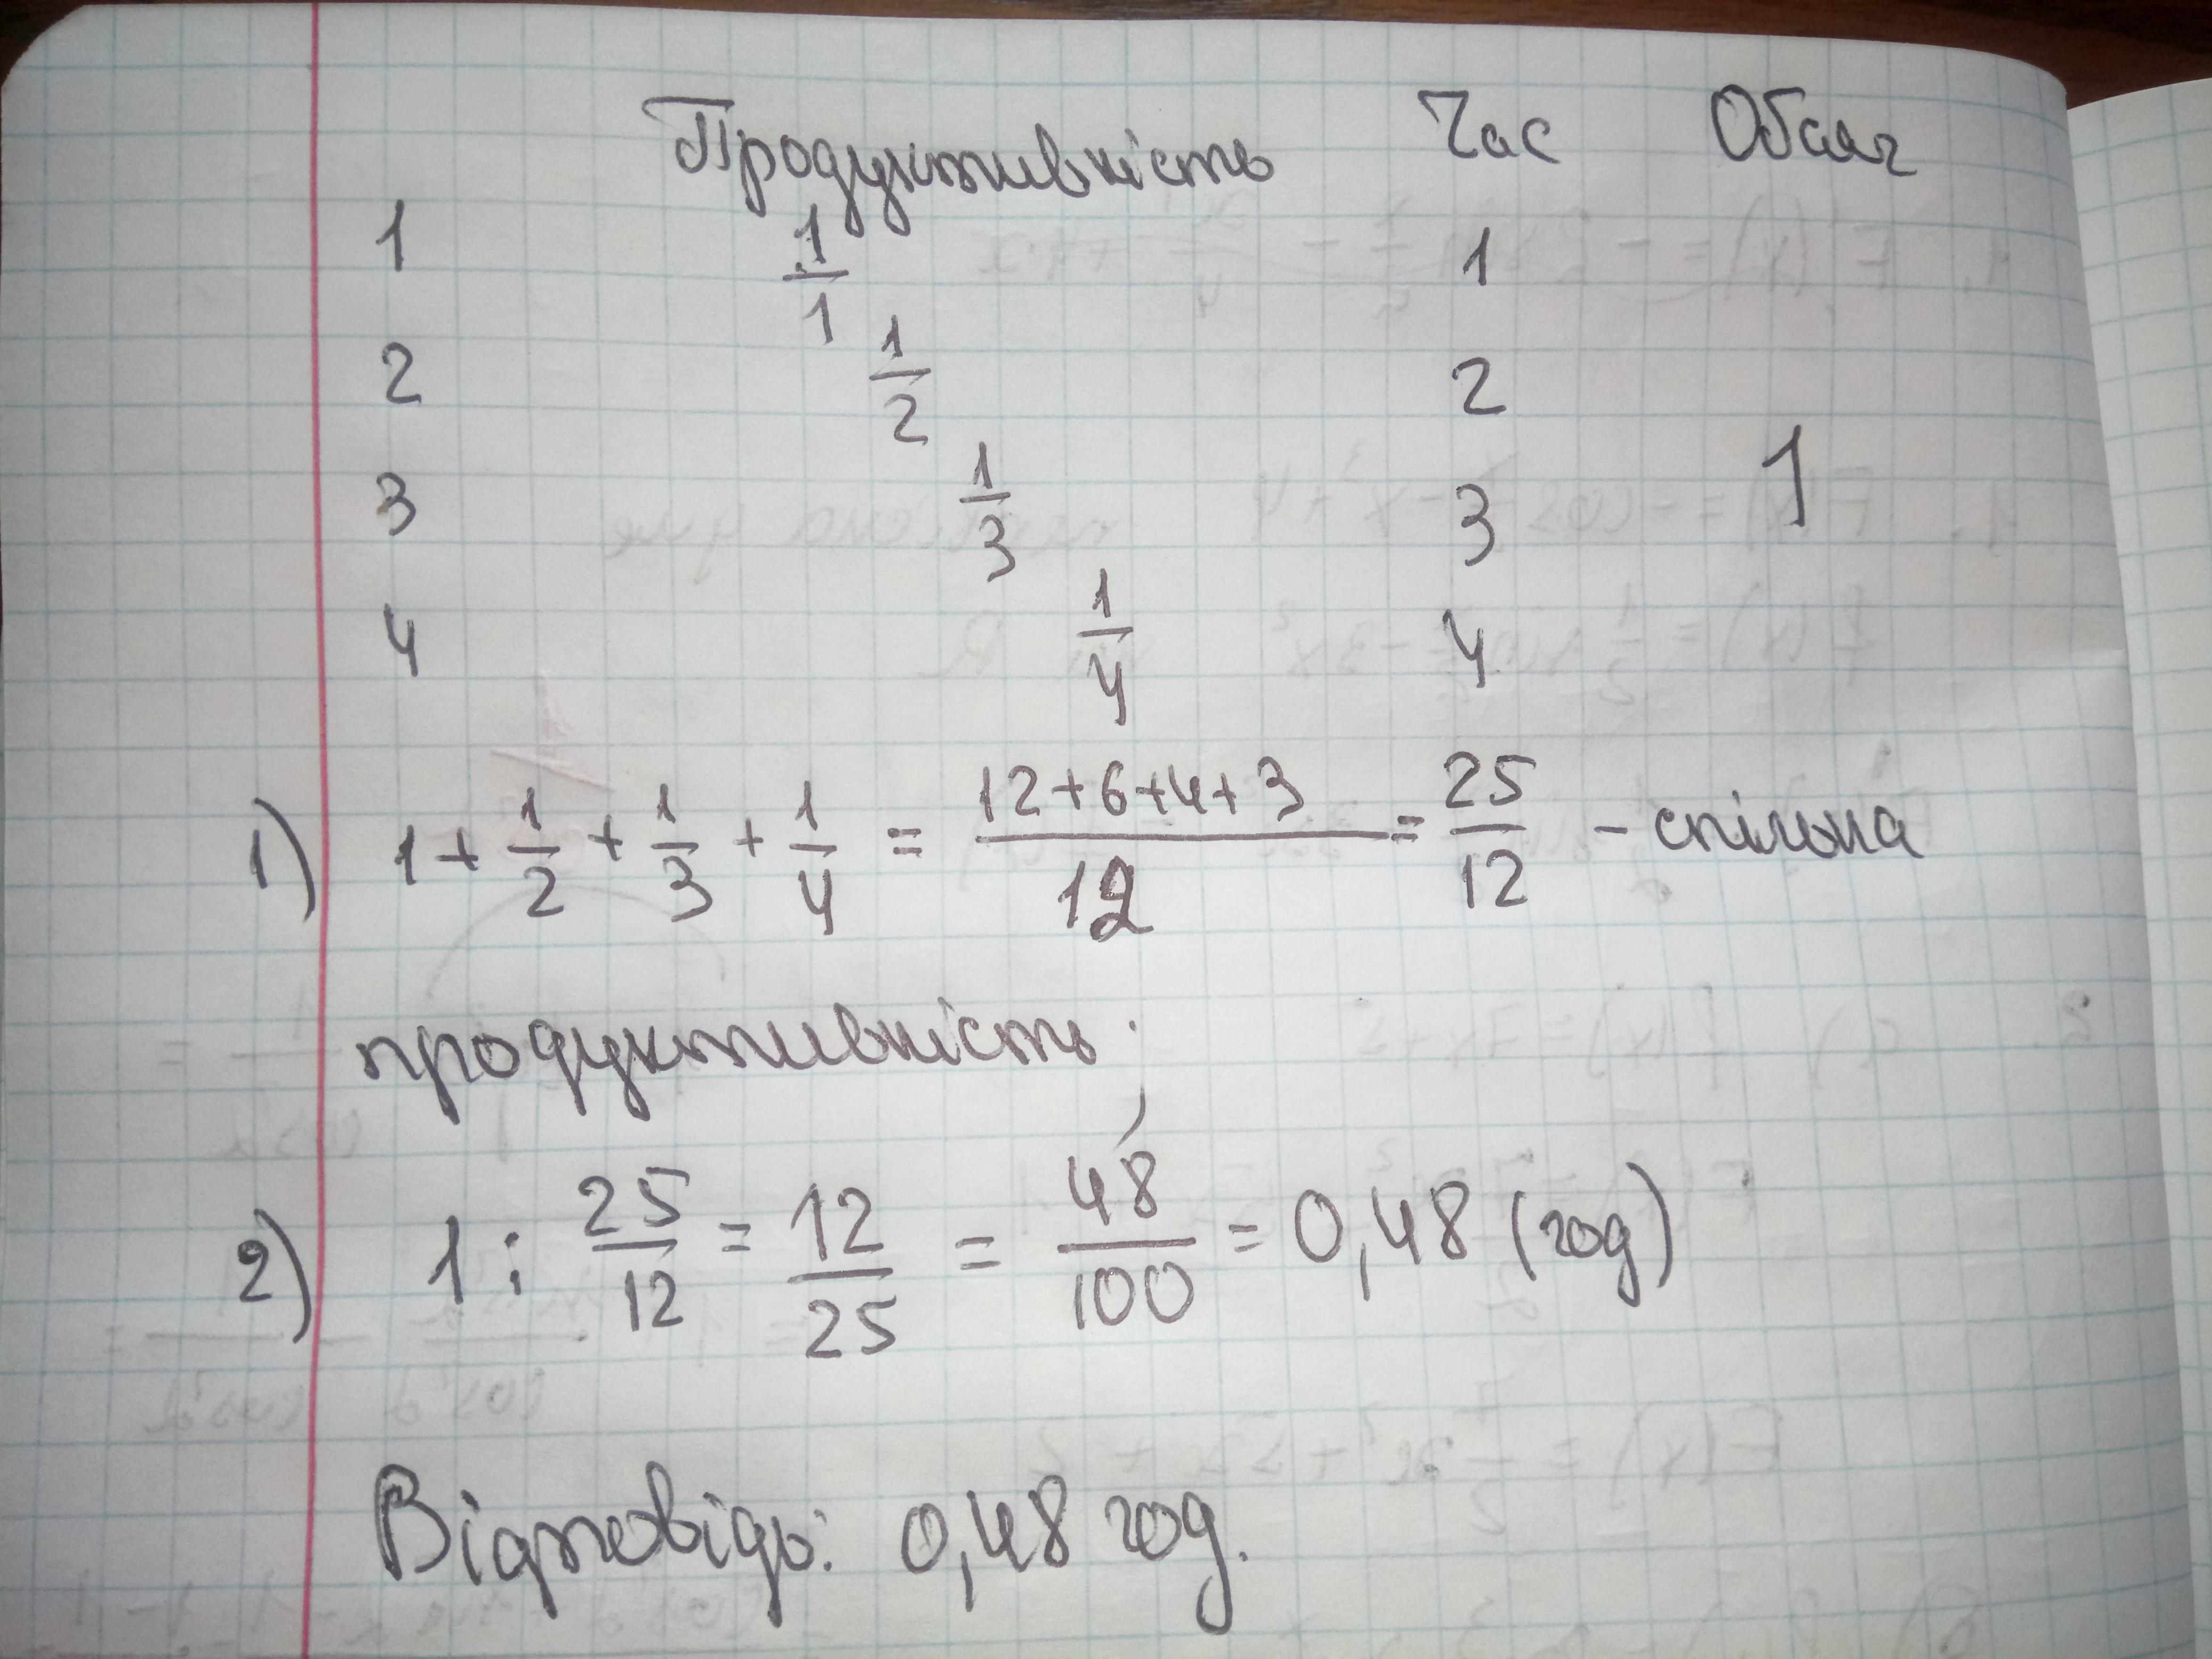 Продуктивність Час Обсяг
1 1/1 1
2 1/2 2
3 1/3 3 1
4 1/4 4
1) 1 + 1/2 + 1/3 + 1/4 = (12+6+4+3)/12 = 25/12 – спільна
продуктивність.
2) 1 : 25/12 = 12/25 = 48/100 = 0,48 (год)
Відповідь: 0,48 год.